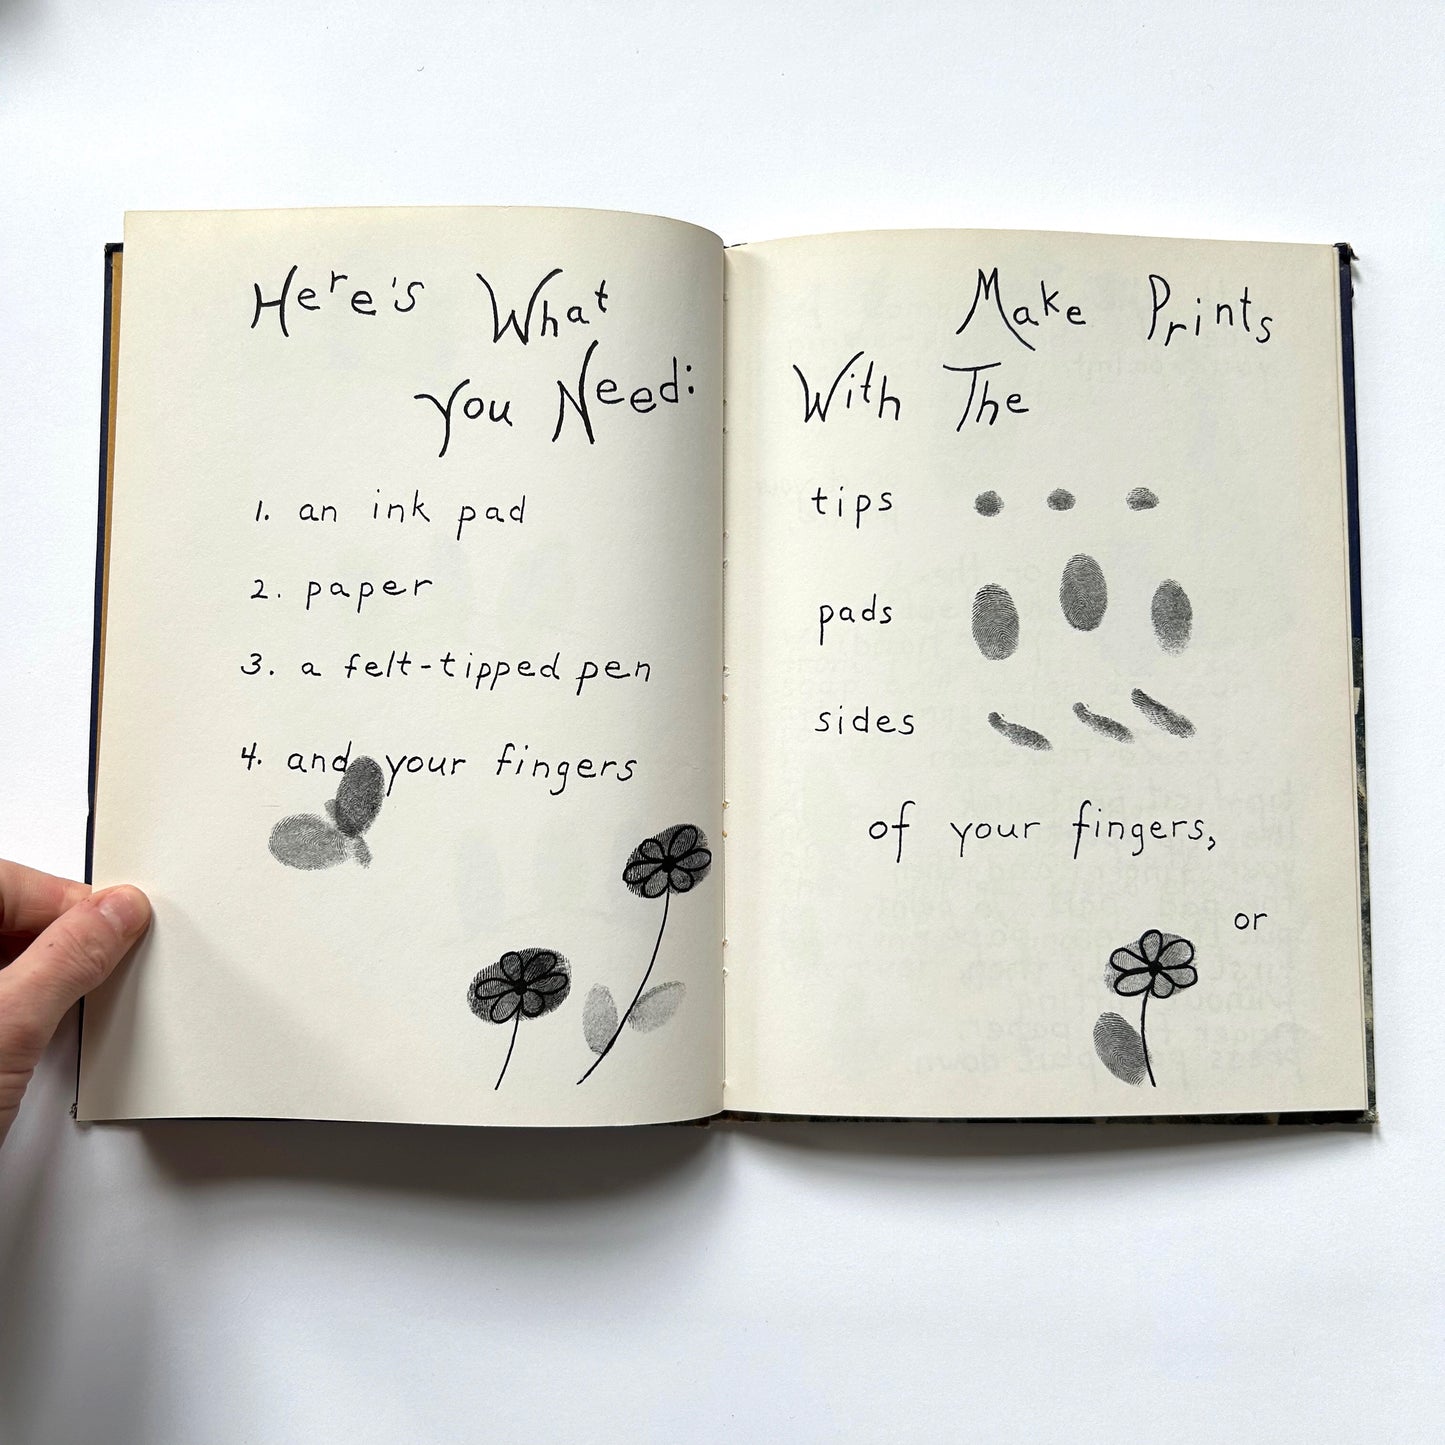 Here's What
You Need:
1. an ink pad
2. paper
3. a felt-tipped pen
4. and your fingers
Make Prints
With The
tips
pads
sides
of your fingers,
or